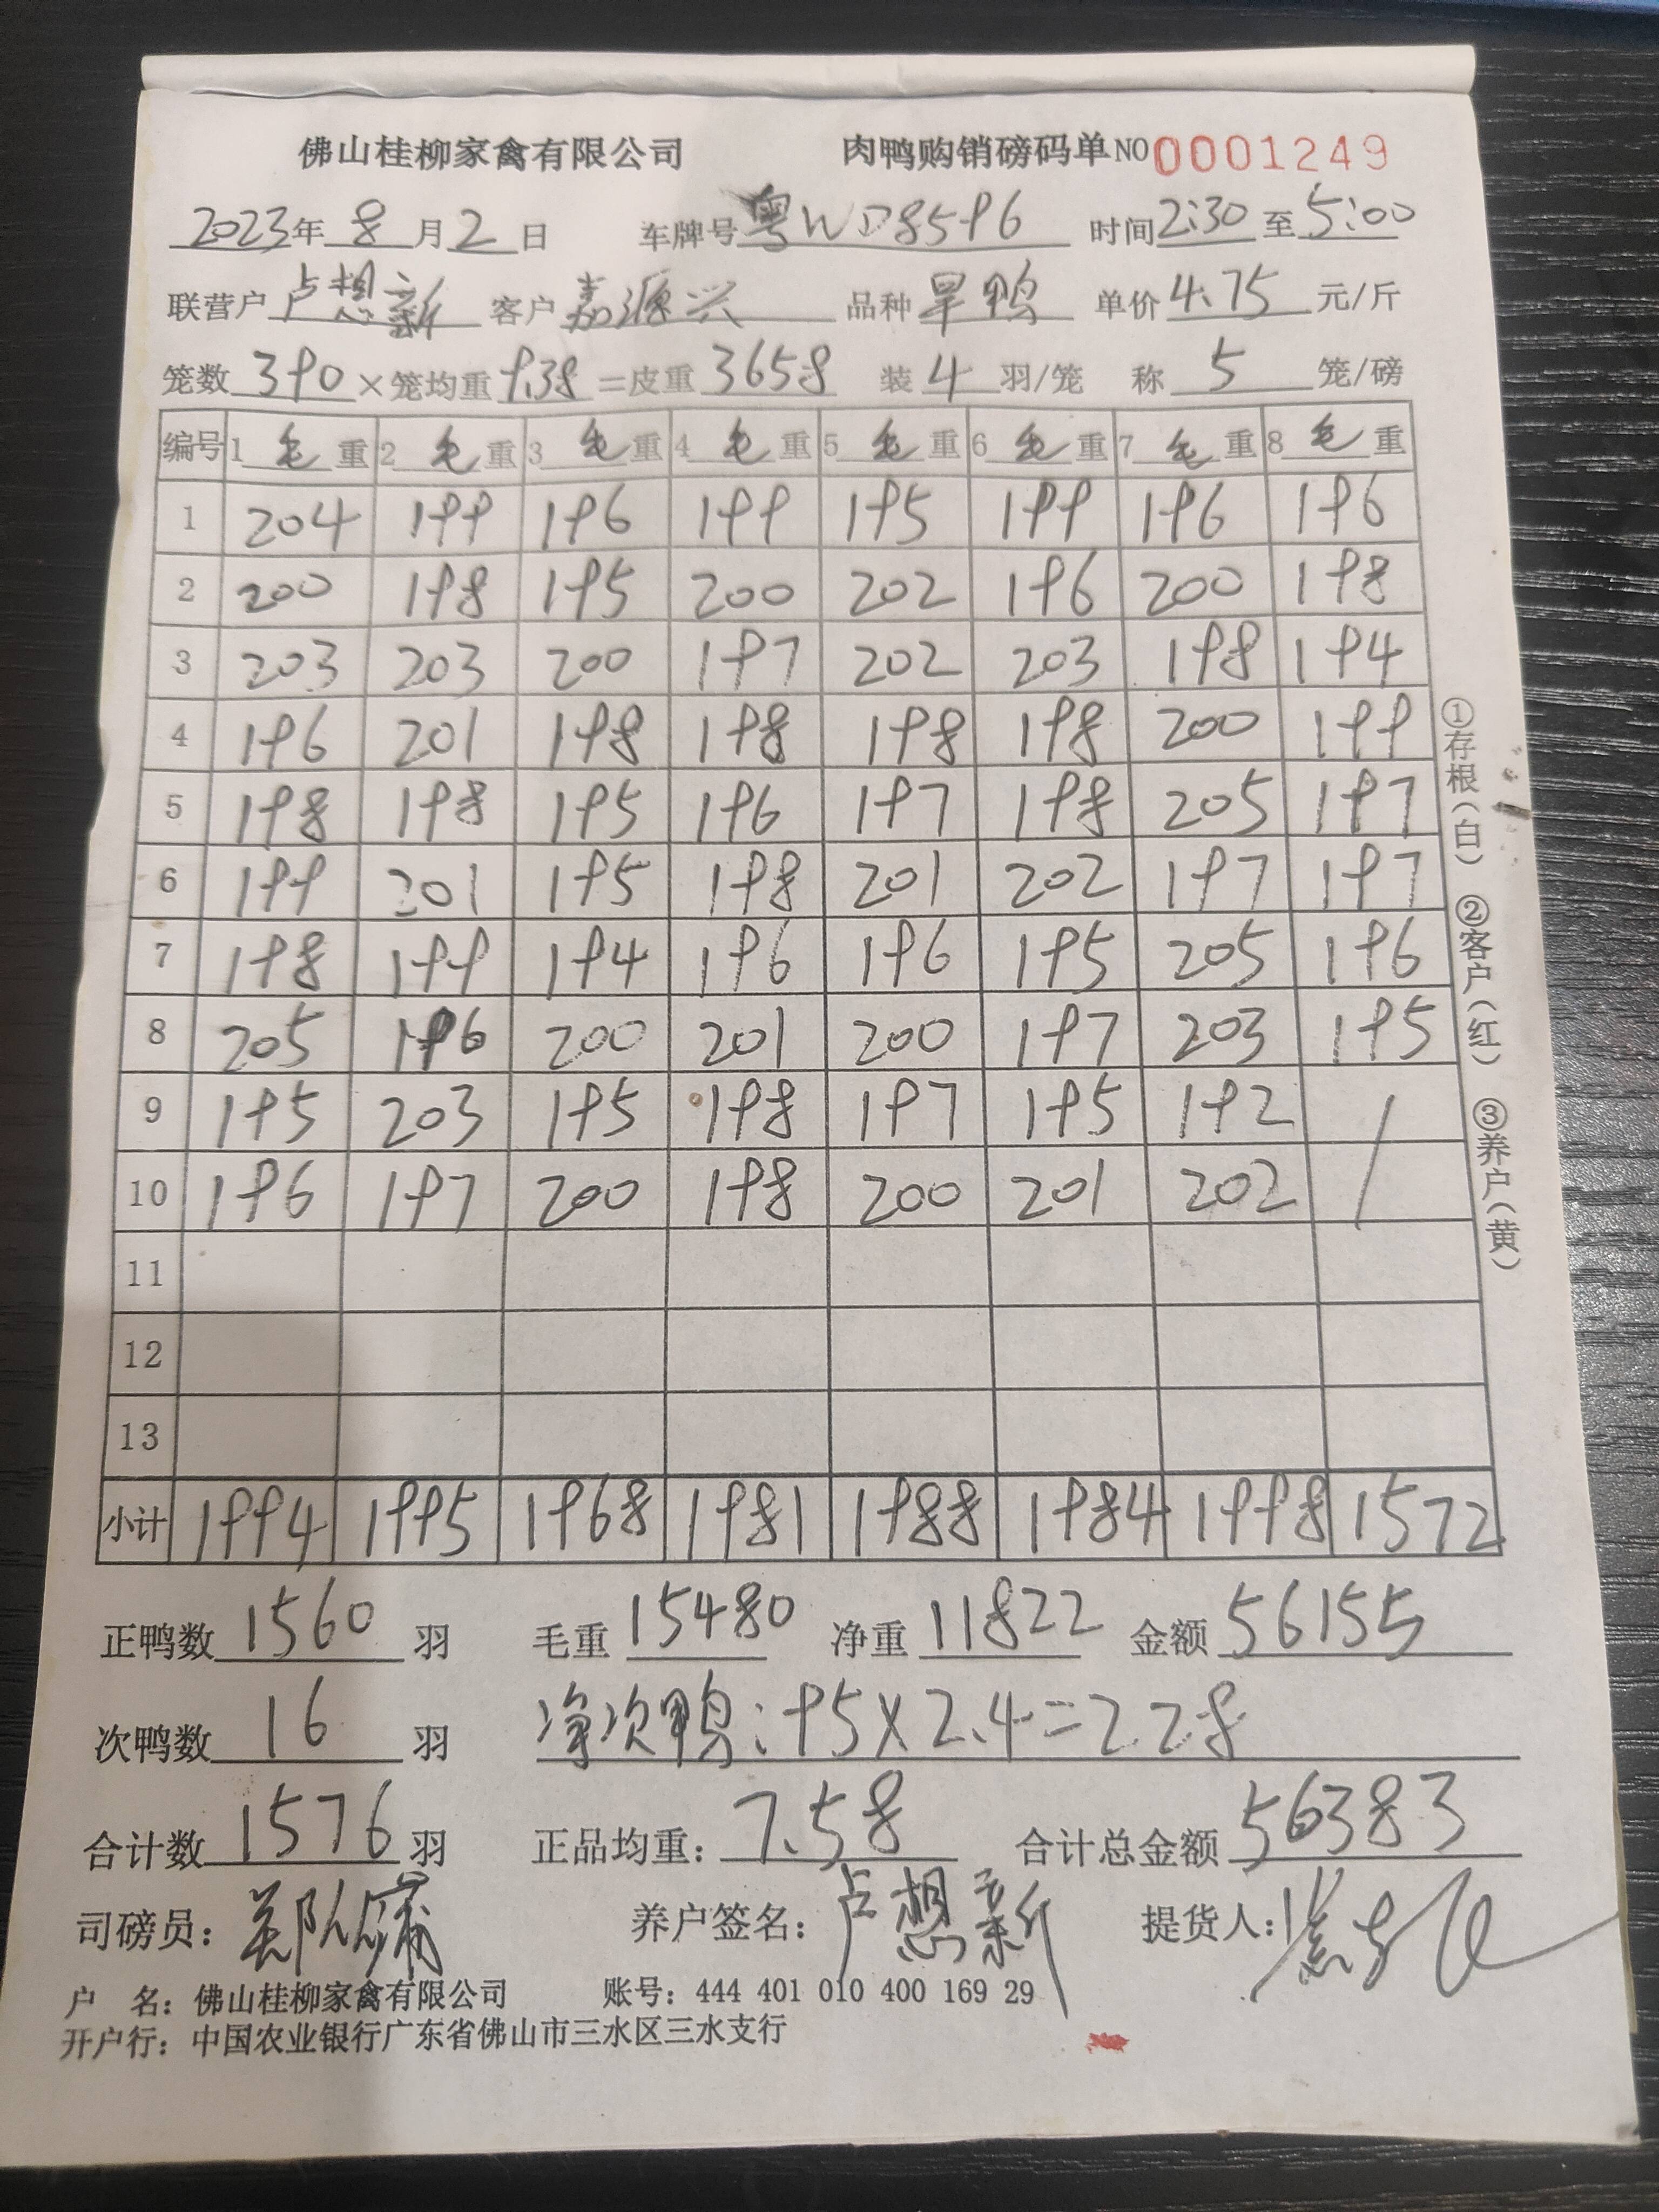 佛山桂柳家禽有限公司 肉鸭购销磅码单NO 0001249
2023年 8月2日 车牌号粤WD8596 时间2:30至5:00
联营户卢想新 客户嘉源兴 品种旱鸭 单价4.75元/斤
笼数390×笼均重9.38=皮重3658 装4羽/笼 称5笼/磅
编号 1毛重 2毛重 3毛重 4毛重 5毛重 6毛重 7毛重 8毛重
1 204 199 196 199 195 199 196 196
2 200 198 195 200 202 196 200 198
3 203 203 200 197 202 203 198 194
4 196 201 198 198 198 198 200 199
5 198 198 195 196 197 198 205 197
6 199 201 195 198 201 202 197 197
7 198 199 194 196 196 195 205 196
8 205 196 200 201 200 197 203 195
9 195 203 195 198 197 195 192 /
10 196 197 200 198 200 201 202
11
12
13
小计 1994 1995 1968 1981 1988 1984 1998 1572
正鸭数1560羽 毛重15480 净重11822 金额56155
次鸭数16羽 净次鸭:95×2.4=228
合计数1576羽 正品均重:7.58 合计总金额56383
司磅员: 养户签名:卢想新 提货人:
户 名:佛山桂柳家禽有限公司 账号:444 401 010 400 169 29
开户行:中国农业银行广东省佛山市三水区三水支行
①存根(白) ②客户(红) ③养户(黄)